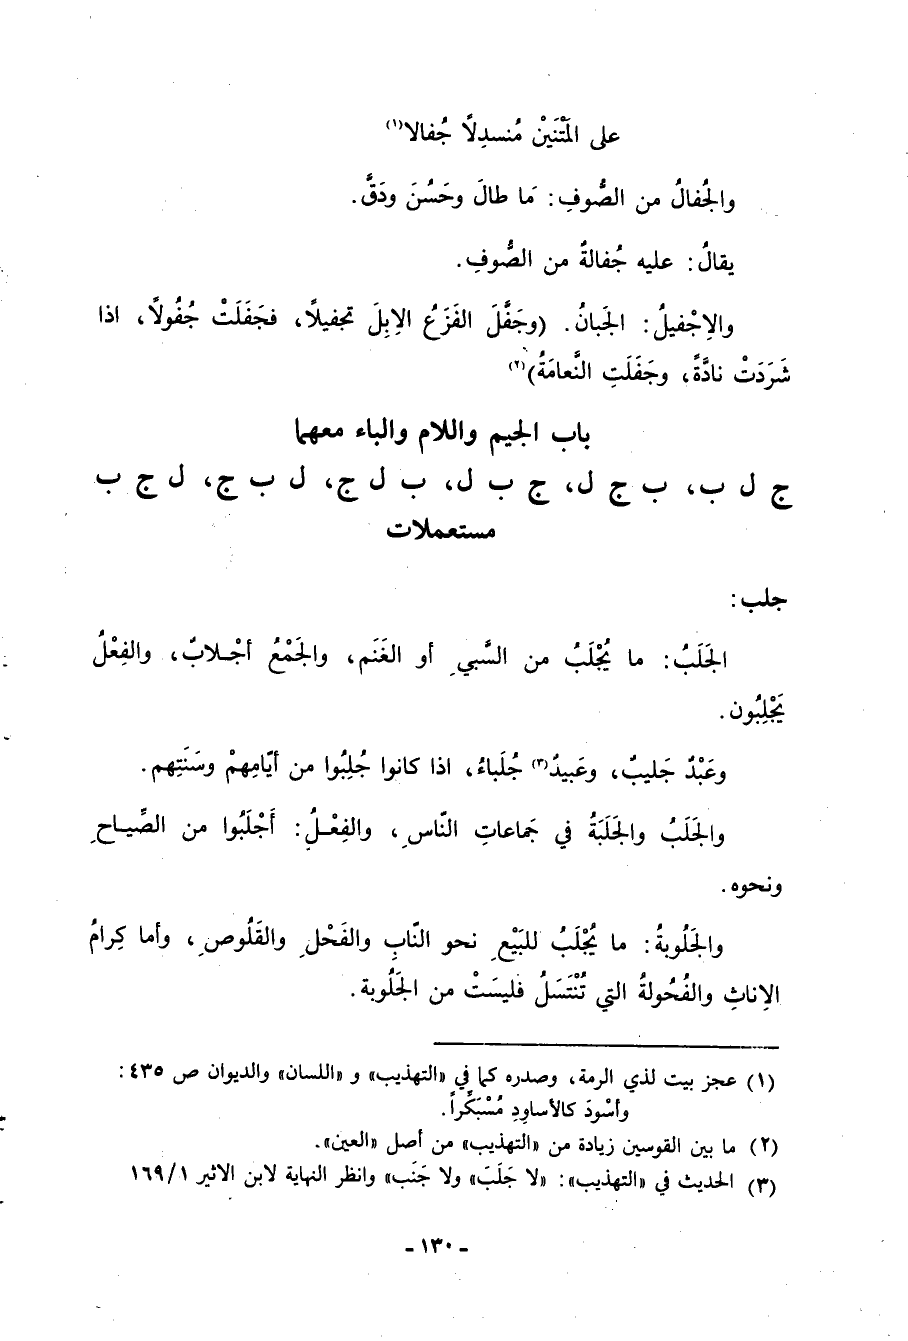 على المَتْنَيْن مُنسدِلاً جُفالا(١)
والجُفالُ من الصُّوفِ: مَا طالَ وحَسُنَ ودَقَّ.
يقالُ: عليه جُفالةٌ من الصُّوفِ.
والإِجْفيلُ: الجَبانُ. (وجَفَّلَ الفَزَعُ الإِبِلَ تجفيلاً، فجَفَلَتْ جُفُولاً، اذا
شَرَدَتْ نادَّةً، وجَفَلَتِ النَّعامَةُ)(٢)
باب الجيم واللام والباء معهما
ج ل ب، ب ج ل، ج ب ل، ب ل ج، ل ب ج، ل ج ب
مستعملات
جلب:
الجَلَبُ: ما يُجْلَبُ من السَّبيِ أو الغَنَم، والجَمْعُ أجْـلابٌ، والفِعْلُ
يَجْلِبُون.
وعَبْدٌ جَليبٌ، وعَبيدٌ(٣) جُلَباءُ، اذا كانوا جُلِبُوا من أيّامِهمْ وسَنَتِهم.
والجَلَبُ والجَلَبَةُ في جَماعاتِ النّاسِ، والفِعْـلُ: أَجْلَبُوا من الصِّيـاحِ
ونحوه.
والجَلُوبةُ: ما يُجْلَبُ للبَيْعِ نحو النّابِ والفَحْلِ والقَلُوصِ، وأما كِرامُ
الإِناثِ والفُحُولةُ التي تُنْتَسَلُ فليسَتْ من الجَلُوبة.
(١) عجز بيت لذي الرمة، وصدره كما في «التهذيب» و «اللسان» والديوان ص ٤٣٥:
وأسْودَ كالأساوِدِ مُسْبَكِّراً.
(٢) ما بين القوسين زيادة من «التهذيب» من أصل «العين».
(٣) الحديث في «التهذيب»: «لا جَلَبَ» ولا جَنَب» وانظر النهاية لابن الاثير ١٦٩/١
- ١٣٠ -